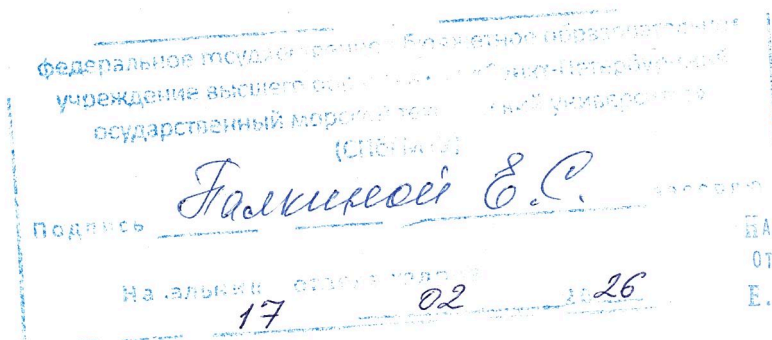 федеральное государственное бюджетное образовательное
учреждение высшего образования «Санкт-Петербургский
осударственный морской технический университет»
(СПбГМТУ)
Подпись Палкиной Е.С. заверяю
Начальник отдела кадров
17 02 2026
НА
ОТ
Е.